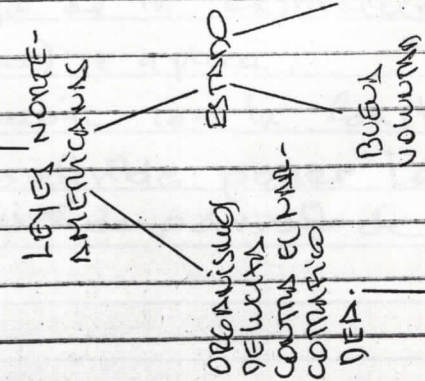 LEYES NORTE-
AMERICANAS
ORGANISMOS
DE LUCHA
CONTRA EL NAR-
COTRAFICO
DEA.
ESTADO
BUENA
VOLUNTAD